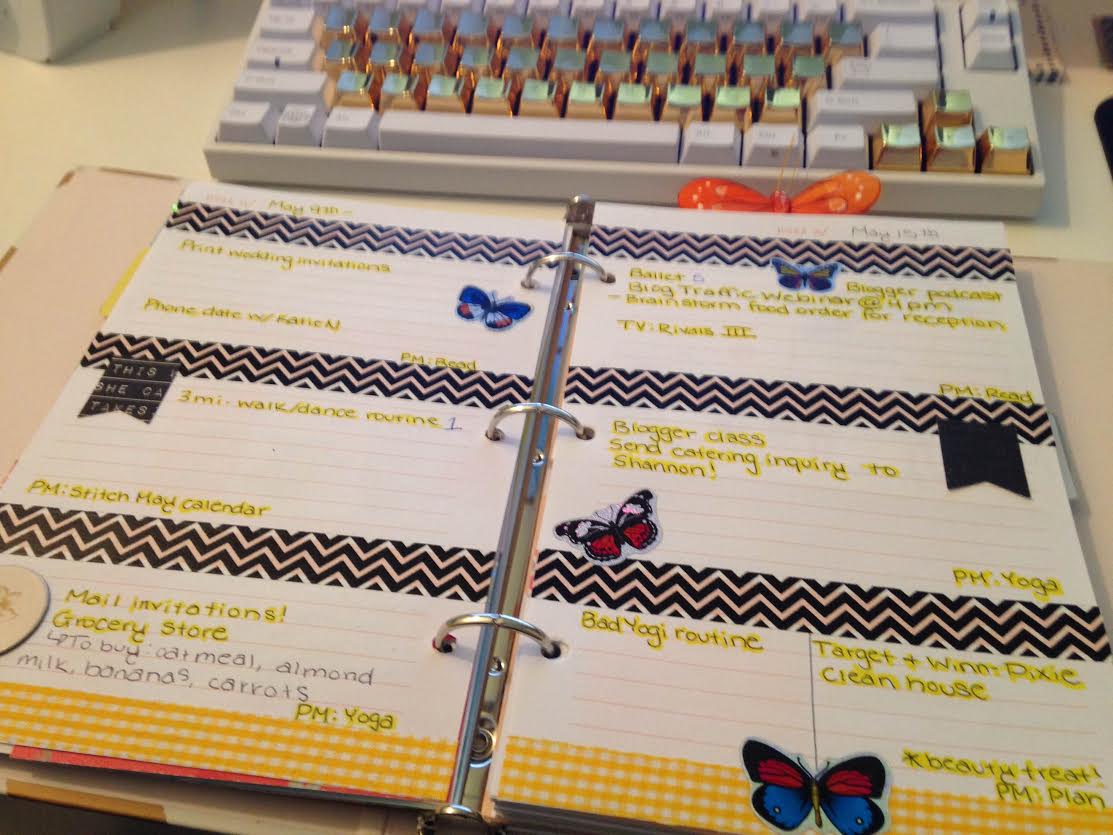 May 9th -
Print wedding invitations
Phone date w/ Katie N
PM: Read
THIS
SHE CA
TAKES
3 mi. walk/dance routine 1
PM: Stitch May calendar
Mail invitations!
Grocery Store
↳ To buy: oatmeal, almond
milk, bananas, carrots
PM: Yoga
May 15th
Ballet 5
Blogger podcast
Blog Traffic Webinar @ 4 pm
- Brainstorm food order for reception
TV: Rivals III
PM: Read
Blogger class
Send catering inquiry to
Shannon!
PM: Yoga
Bad Yogi routine
Target + Winn-Dixie
Clean house
*beauty treat!
PM: Plan